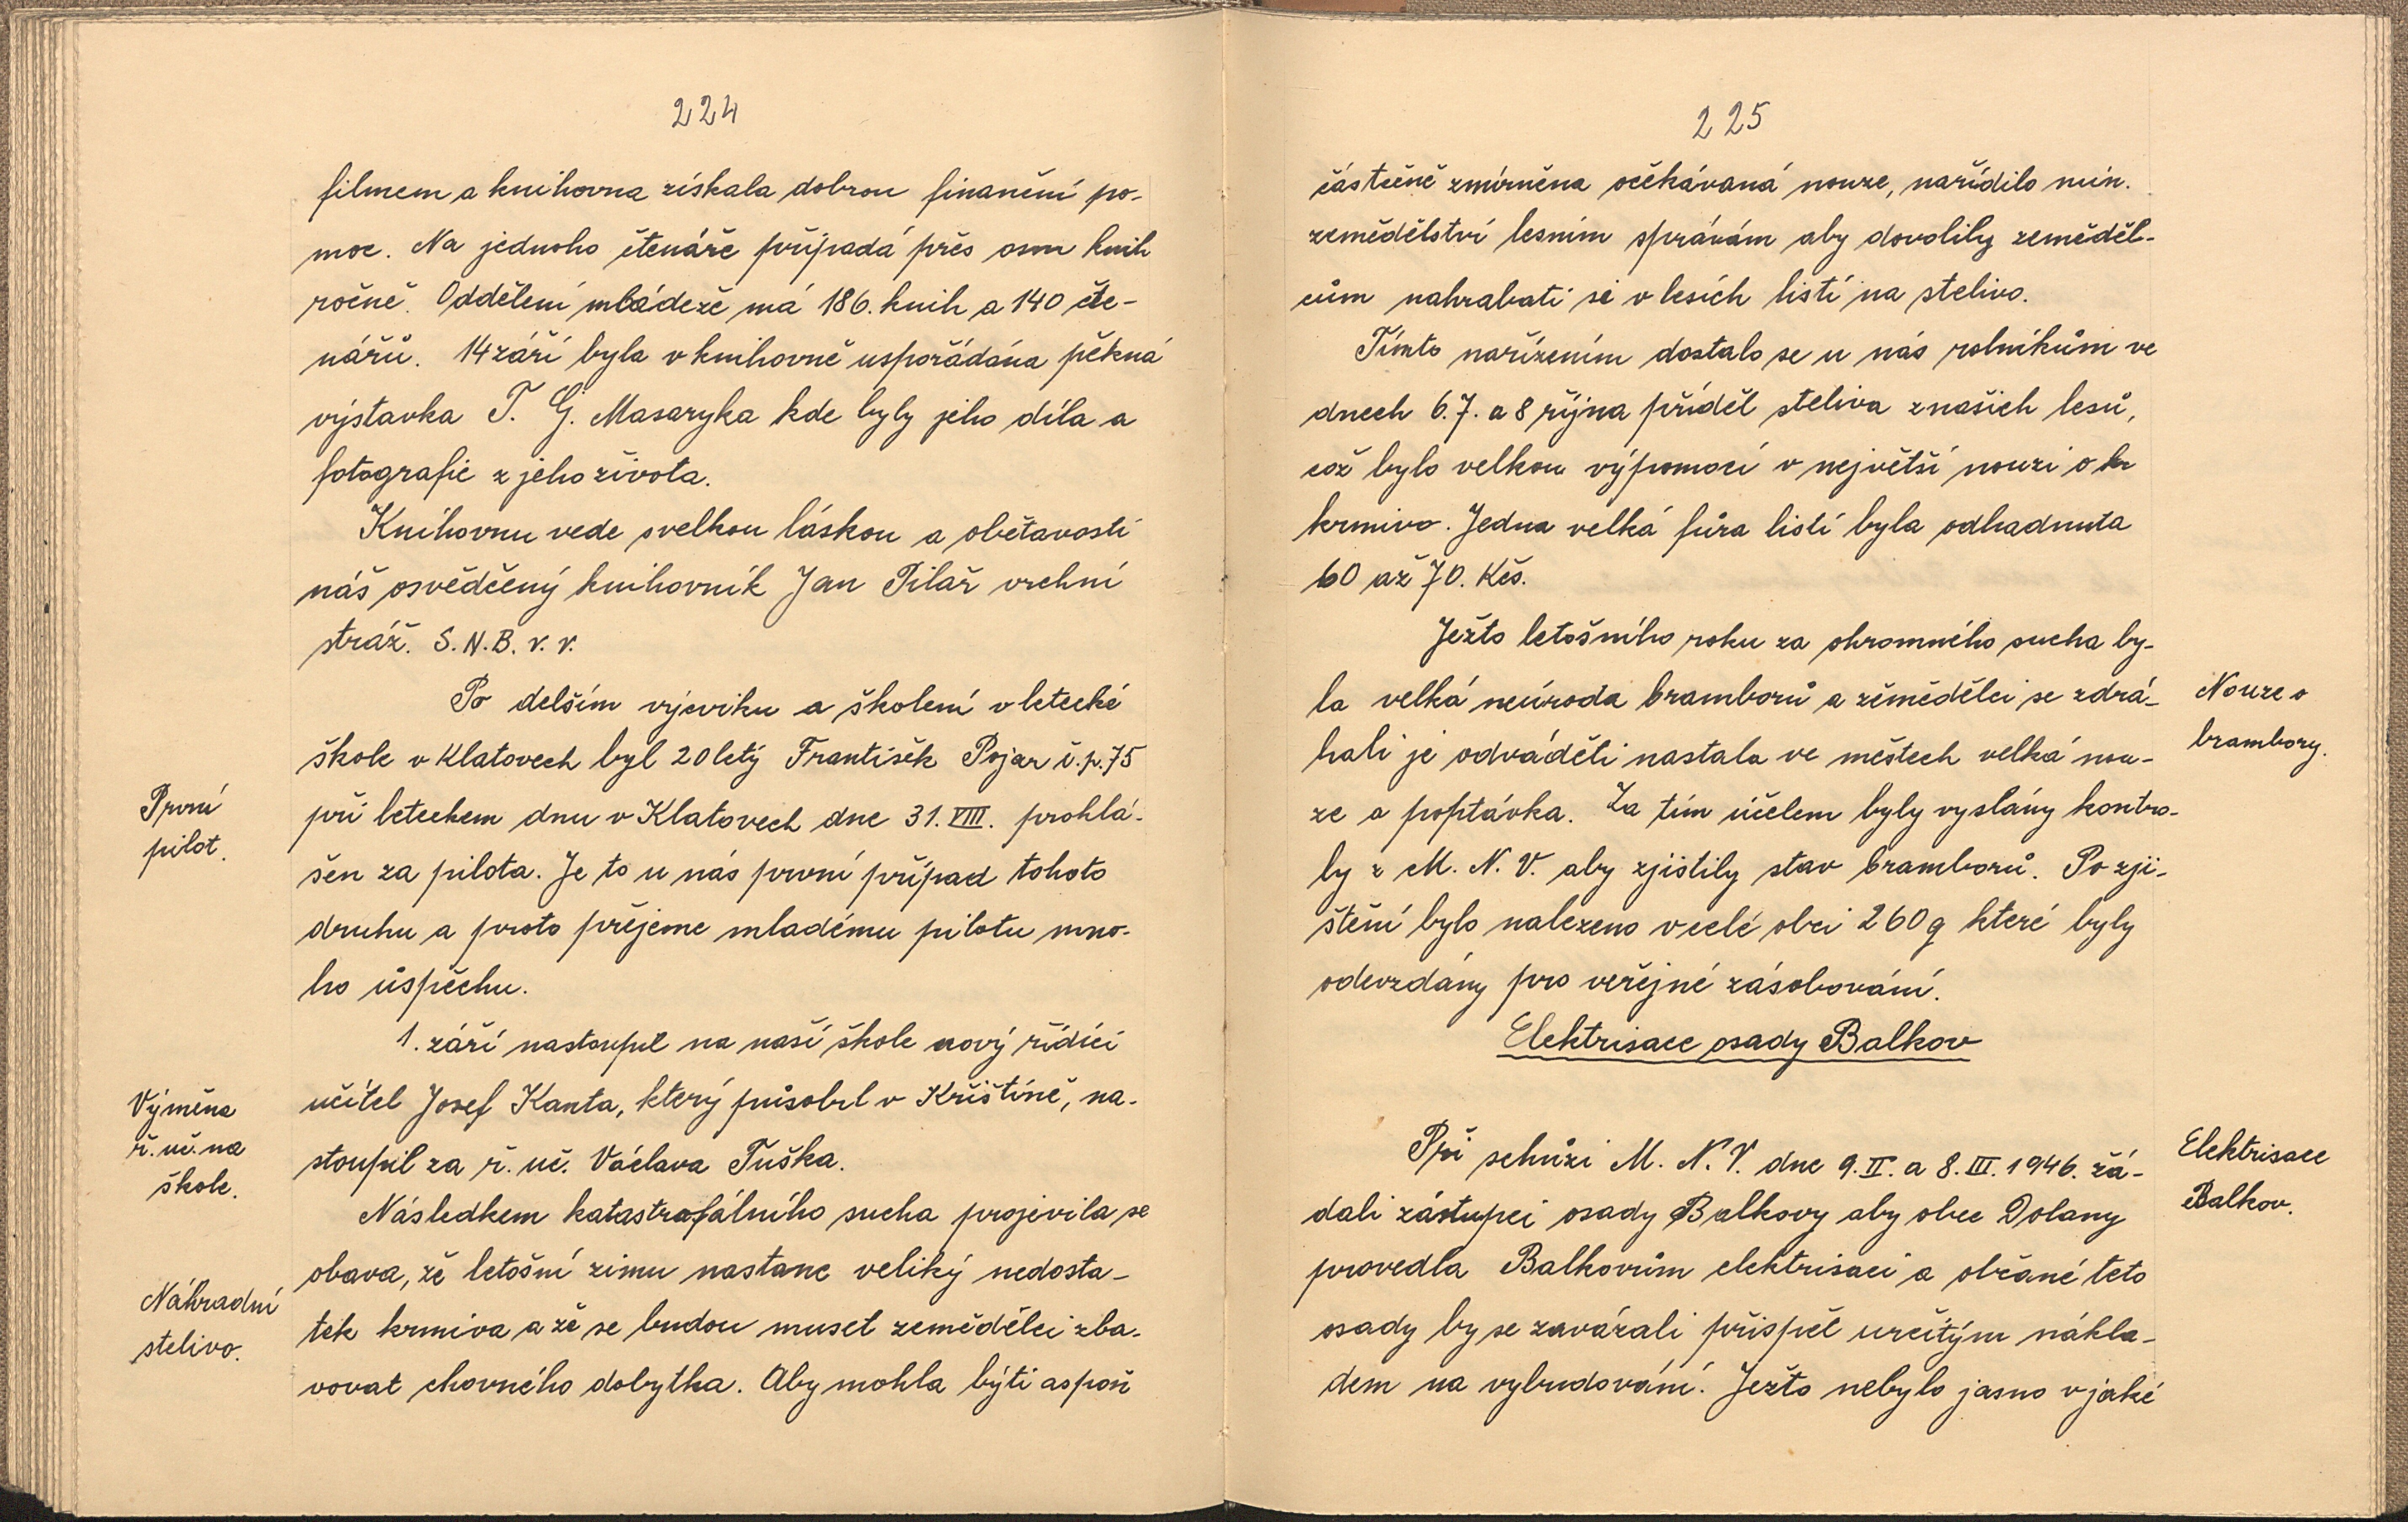 224
filmem a knihovna získala dobrou finanční po-
moc. Na jednoho čtenáře připadá přes osm knih
ročně. Oddělení mládeže má 186. knih a 140 čte-
nářů. 14 září byla v knihovně uspořádána pěkná
výstavka T. G. Masaryka kde byly jeho díla a
fotografie z jeho života.
Knihovnu vede s velkou láskou a obětavostí
náš osvědčený knihovník Jan Pilař vrchní
stráž. S.N.B. v. v.
Po delším výcviku a školení v letecké
škole v Klatovech byl 20letý František Pojar č.p. 75
První
pilot.
při leteckem dnu v Klatovech dne 31. VIII. prohlá-
šen za pilota. Je to u nás první případ tohoto
druhu a proto přejeme mladému pilotu mno-
ho úspěchu.
1. září nastoupil na naší škole nový řídící
Výměna
ř. uč. na
škole.
učitel Josef Kanta, který působil v Křištíně, na-
stoupil za ř. uč. Václava Tuška.
Následkem katastrofálního sucha projevila se
obava, že letošní zimu nastane veliký nedosta-
Náhradní
stelivo.
tek krmiva a že se budou muset zemědělci zba-
vovat chovného dobytka. Aby mohla býti aspoň
225
částečně zmírněna očekávaná nouze, nařídilo min.
zemědělství lesním správám aby dovolily zeměděl-
cům nahrabati si v lesích listí na stelivo.
Tímto nařízením dostalo se u nás rolníkům ve
dnech 6. 7. a 8 října příděl steliva z našich lesů,
což bylo velkou výpomocí v největší nouzi o kr
krmivo. Jedna velká fůra listí byla odhadnuta
60 až 70. Kčs.
Ježto letošního roku za ohromného sucha by-
la velká neúroda bramborů a zemědělci se zdrá-
Nouze o
brambory.
hali je odváděti nastala ve městech velká nou-
ze a poptávka. Za tím účelem byly vyslány kontro-
ly z M. N. V. aby zjistily stav bramborů. Po zji-
štění bylo nalezeno v celé obci 260 q které byly
odevzdány pro veřejné zásobování.
Elektrisace osady Balkov
Při schůzi M. N. V. dne 9. II. a 8. III. 1946. žá-
Elektrisace
Balkov.
dali zástupci osady Balkovy aby obec Dolany
provedla Balkovům elektrisaci a občané teto
osady by se zavázali přispěl určitým nákla-
dem na vybudování. Ježto nebylo jasno v jaké